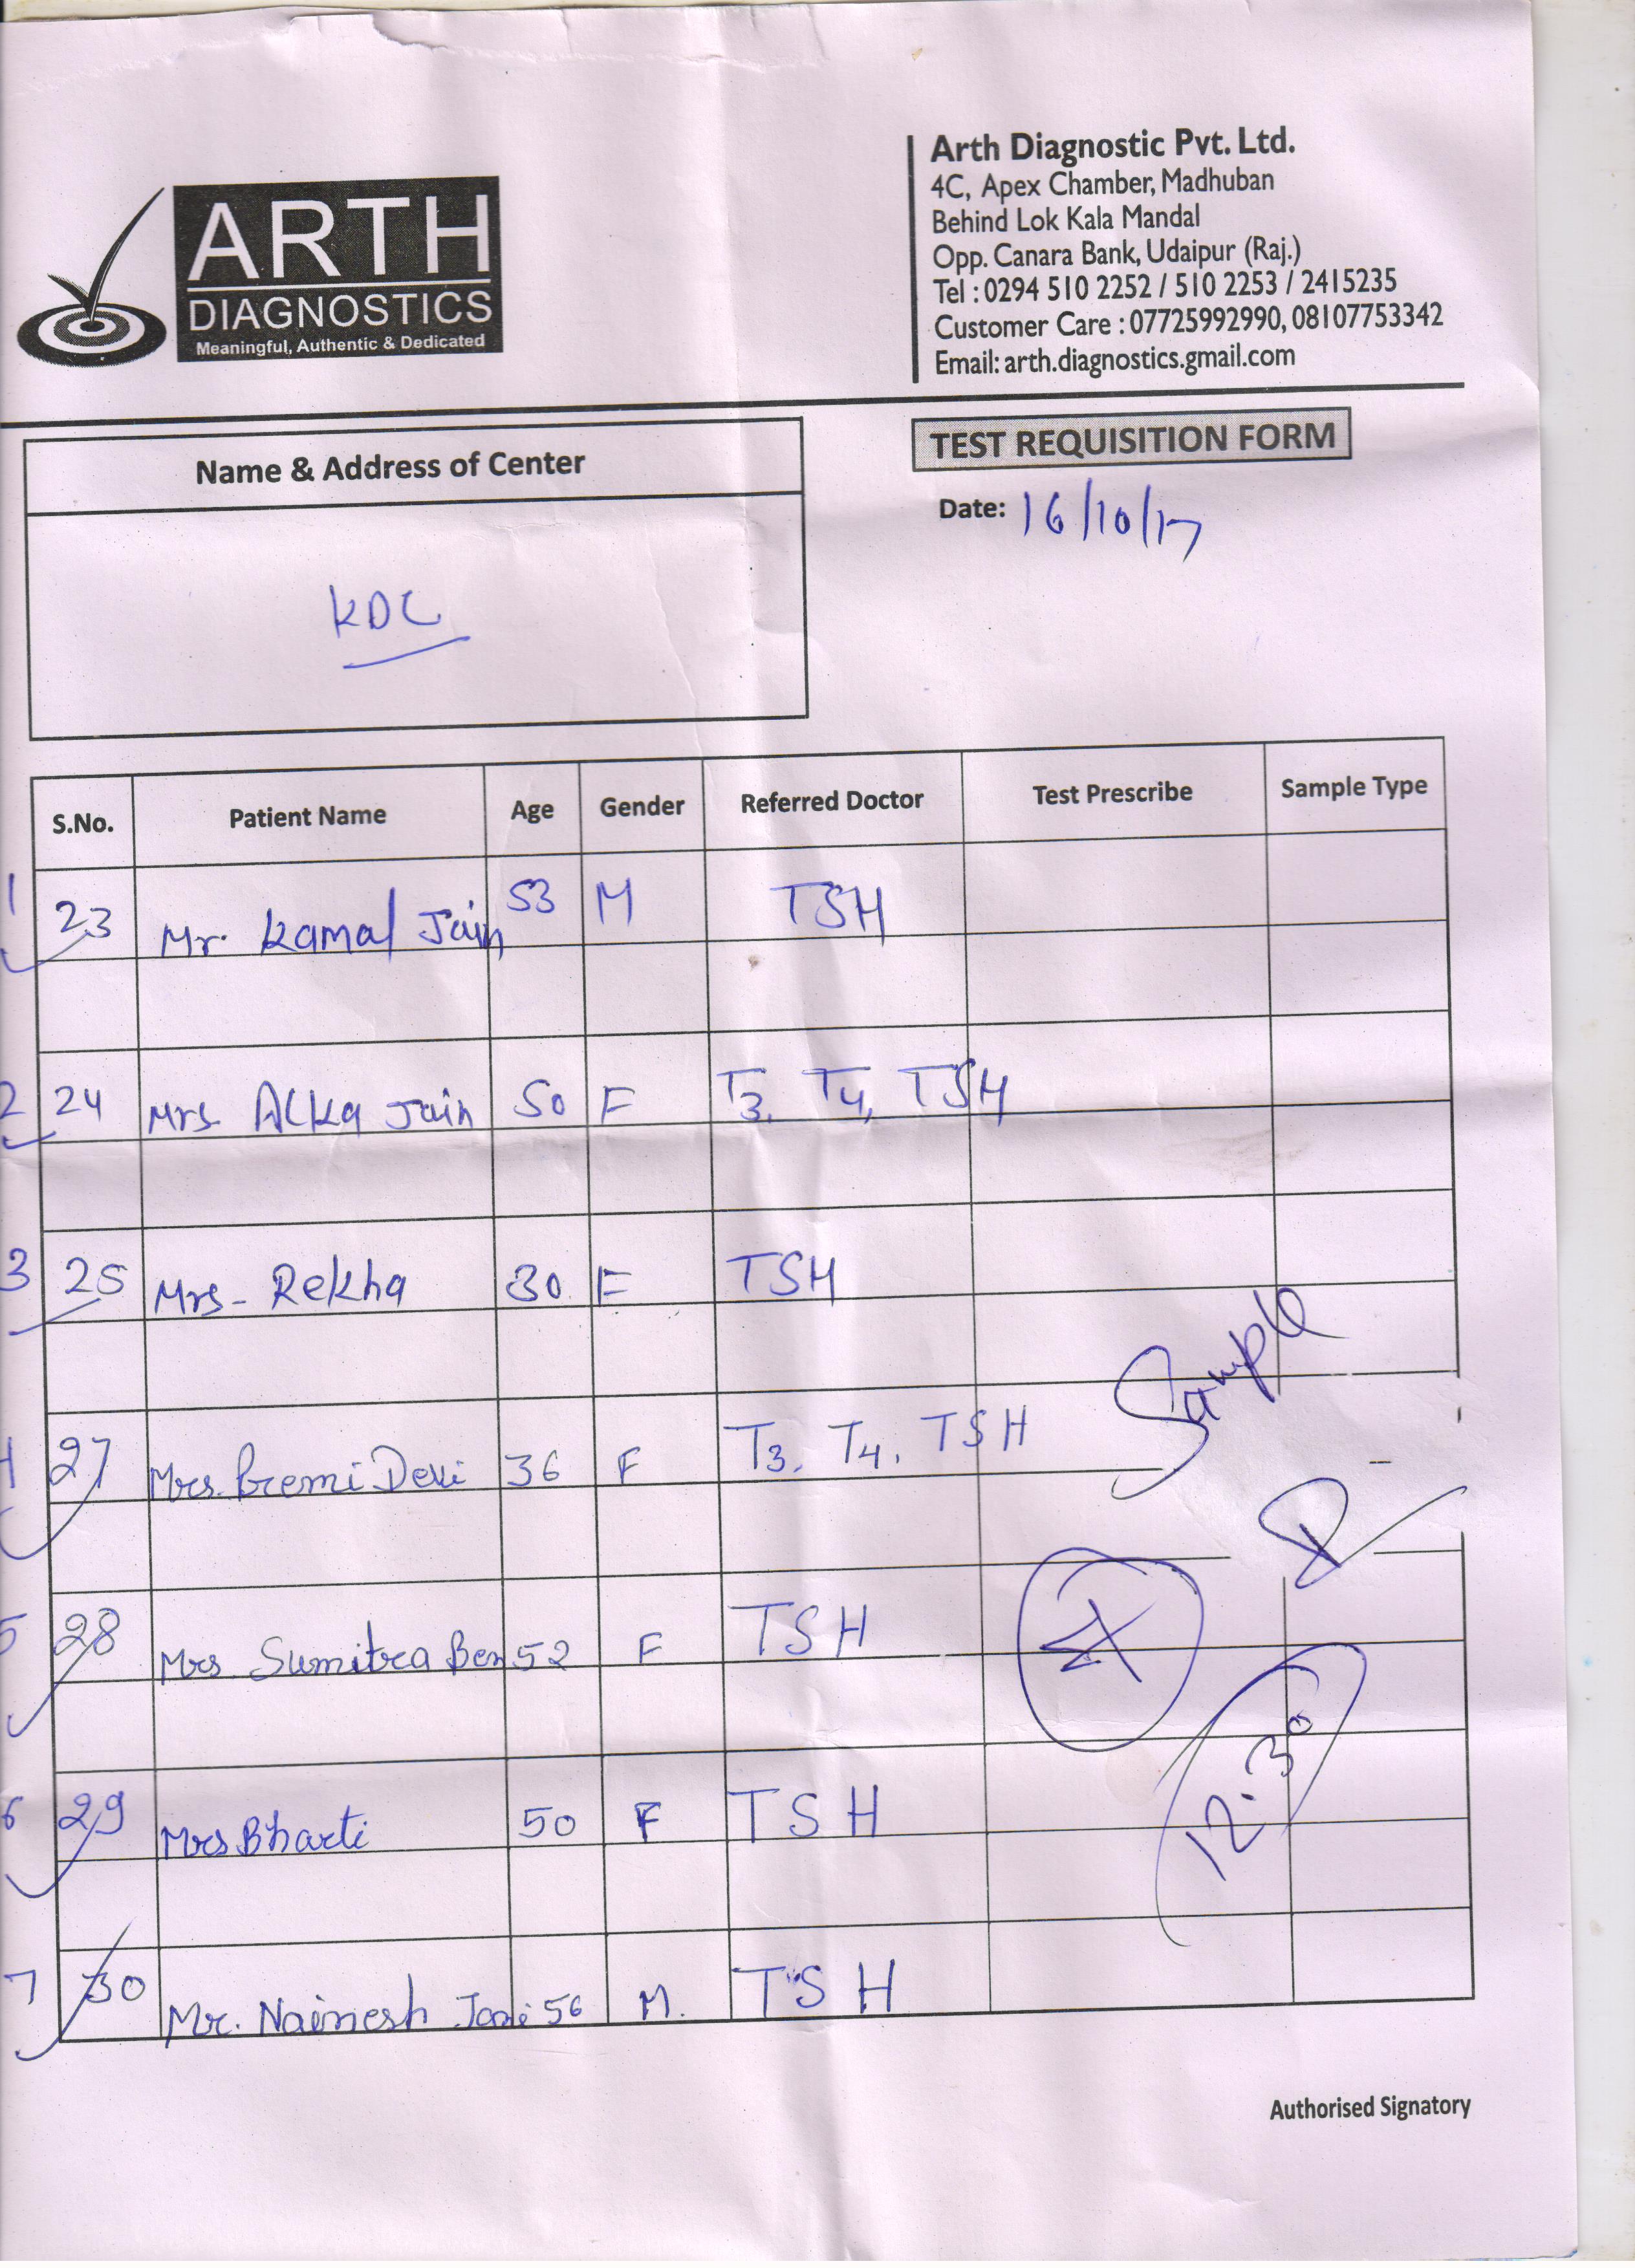 ARTH
DIAGNOSTICS
Meaningful, Authentic & Dedicated
Arth Diagnostic Pvt. Ltd.
4C, Apex Chamber, Madhuban
Behind Lok Kala Mandal
Opp. Canara Bank, Udaipur (Raj.)
Tel : 0294 510 2252 / 510 2253 / 2415235
Customer Care : 07725992990, 08107753342
Email: arth.diagnostics.gmail.com
Name & Address of Center
TEST REQUISITION FORM
Date: 16/10/17
KDC
S.No. Patient Name Age Gender Referred Doctor Test Prescribe Sample Type
1 23 Mr. Kamal Jain 53 M TSH
2 24 Mrs Alka Jain 50 F T3, T4, TSH
3 25 Mrs - Rekha 30 F TSH
4 27 Mrs. Premi Devi 36 F T3, T4, TSH
Sample
5 28 Mrs Sumitra Ben 52 F TSH
12.30
6 29 Mrs Bharti 50 F TSH
7 30 Mr. Nainesh 56 M. TSH
Authorised Signatory